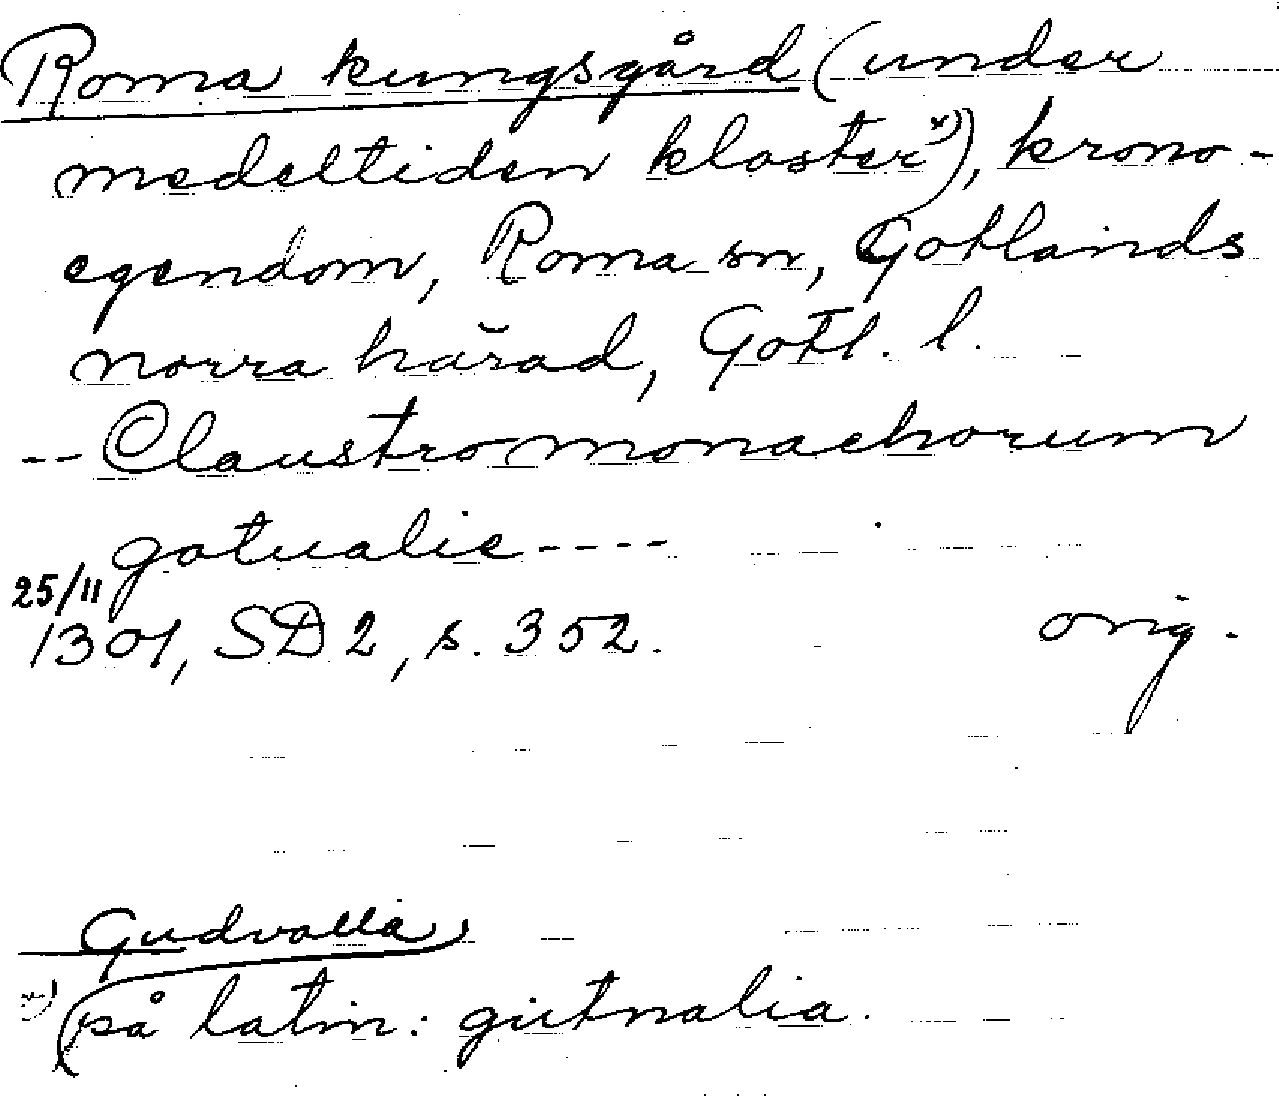 Roma kungsgård (under
medeltiden kloster*)), krono-
egendom, Roma sn, Gotlands
norra härad, Gotl. l.
-- Claustro monachorum
gotualie ----
25/11
1301, SD 2, s. 352. orig.
Gudvalla
*) på latin: gutnalia.